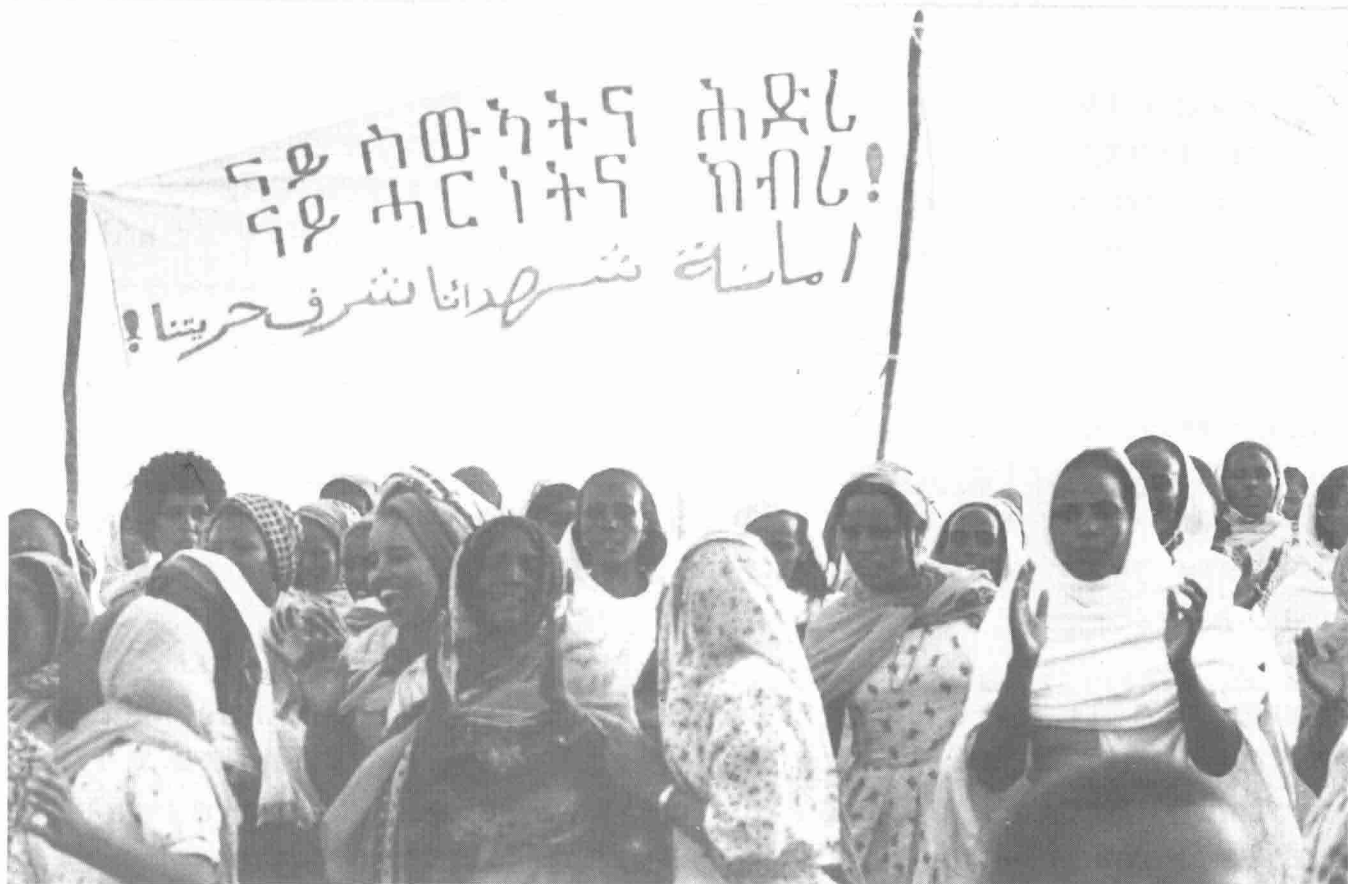 ናይ ስውኣትና ሕድሪ
ናይ ሓርነትና ክብሪ!
امانة شهدائنا شرف حريتنا!